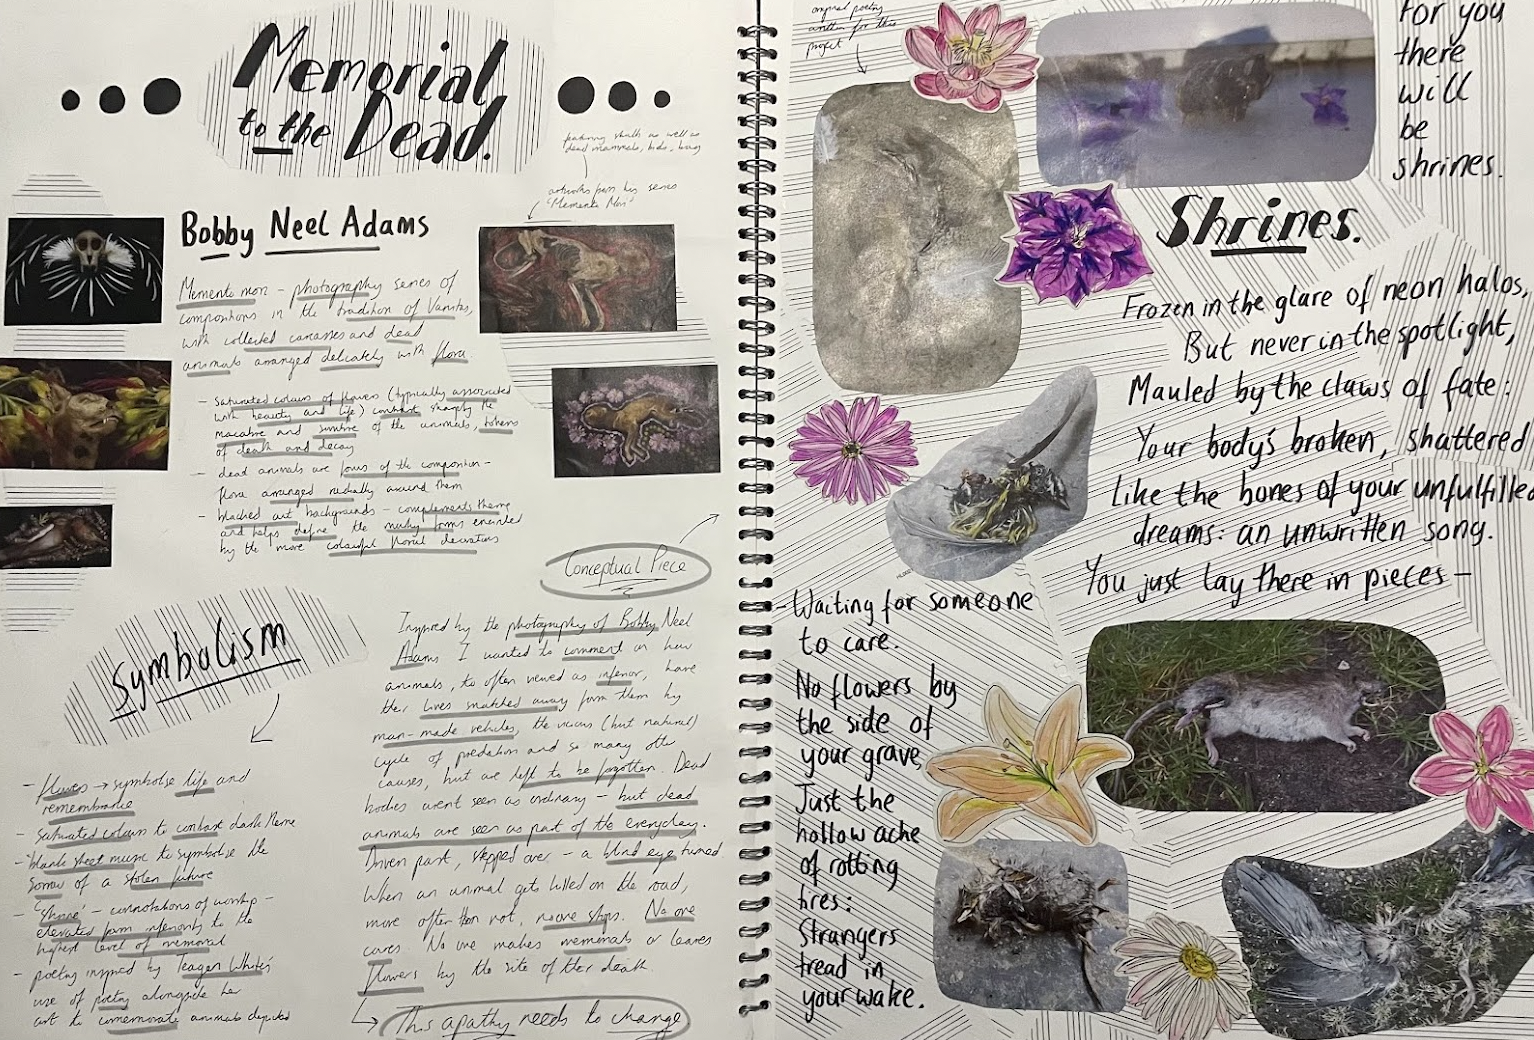 Memorial
to the Dead.
featuring skulls as well as
dead mammals, birds, bugs
artworks from his series
'Memento Mori'
Bobby Neel Adams
Memento mori - photography series of
compositions in the tradition of Vanitas,
with collected carcasses and dead
animals arranged delicately with flora
- Saturated colours of flowers (typically associated
with beauty and life) contrast sharply the
macabre and sombre of the animals, tokens
of death and decay
- dead animals are focus of the composition -
flora arranged radially around them
- blacked out backgrounds - complements theme
and helps define the murky forms encircled
by the more colourful floral decorations
Conceptual Piece
Inspired by the photography of Bobby Neel
Adams I wanted to comment on how
animals, so often viewed as inferior, have
their lives snatched away from them by
man-made vehicles, the vicious (but natural)
cycle of predation and so many other
causes, but are left to be forgotten. Dead
bodies aren't seen as ordinary - but dead
animals are seen as part of the everyday.
Driven past, stepped over - a blind eye turned
When an animal gets killed on the road,
more often than not, no one stops. No one
cares. No one makes memorials or leaves
flowers by the site of their death.
This apathy needs to change
Symbolism
- flowers → symbolise life and
remembrance
- saturated colours to contrast dark theme
- 'blank sheet music' to symbolise the
sorrow of a stolen future
- 'Shrine' - connotations of worship -
elevated from inferiority to the
highest level of memorial
- poetry inspired by Teagan White's
use of poetry alongside her
art to commemorate animals depicted
original poetry
written for this
project
For you
there
will
be
shrines.
Shrines.
Frozen in the glare of neon halos,
But never in the spotlight,
Mauled by the claws of fate:
Your body's broken, shattered
Like the bones of your unfulfilled
dreams: an unwritten song.
You just lay there in pieces -
- Waiting for someone
to care.
No flowers by
the side of
your grave,
Just the
hollow ache
of rotting
tires:
Strangers
tread in
your wake.